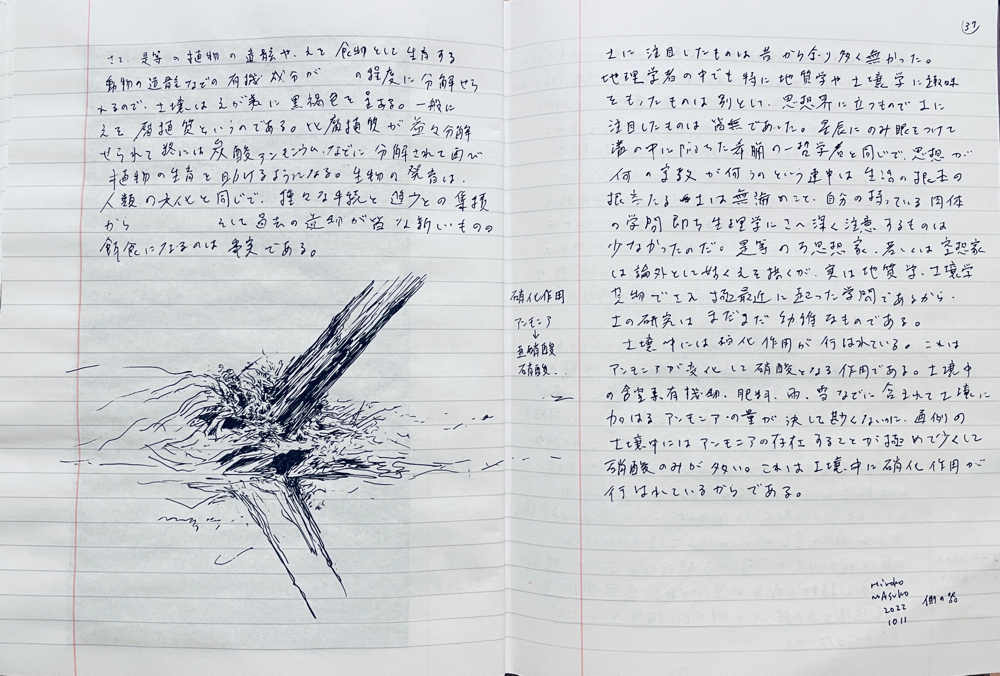 さて、是等の植物の遺骸や、之を食物として生育する
動物の遺骸などの有機成分が の程度に分解せら
れるので、土壌は之が為に黒褐色を呈する。一般に
之を腐植質というのである。此腐植質が益々分解
せられて終には炭酸アンモニウムなどに分解されて再び
植物の生育を助けるようになる。生物の発育は、
人類の文化と同じで、種々な手続と迫力との集積
から そして過去の遺却が皆な新しいものの
餌食になるのは事実である。
硝化作用
アンモニア
↓
亜硝酸
硝酸
37
土に注目したものは昔から余り多く無かった。
地理学者の中でも特に地質学や土壌学に趣味
をもったものは別とし、思想界に立つもので土に
注目したものは皆無であった。星辰にのみ眼をつけて
溝の中に陥ちた希臘の一哲学者と同じで、思想が
何の宗教が何うのという連中は生活の根本の
根本たる土は無論のこと、自分の持っている肉体
の学問即ち生理学にさへ深く注意するものは
少なかったのだ。是等の思想家、若しくは空想家
は論外として姑く之を措くが、実は地質学、土壌学
其物でさえ極最近に起った学問であるから、
土の研究はまだまだ幼稚なものである。
土壌中には硝化作用が行はれている。これは
アンモニアが変化して硝酸となる作用である。土壌中
の含窒素有機物、肥料、雨、雪などに含まれて土壌に
加はるアンモニアの量が決して尠くないのに、
土壌中にはアンモニアの存在することが極めて少くして
硝酸のみが多い。これは土壌中に硝化作用が
行はれているからである。
Hiroko
Masuko
2022
1011